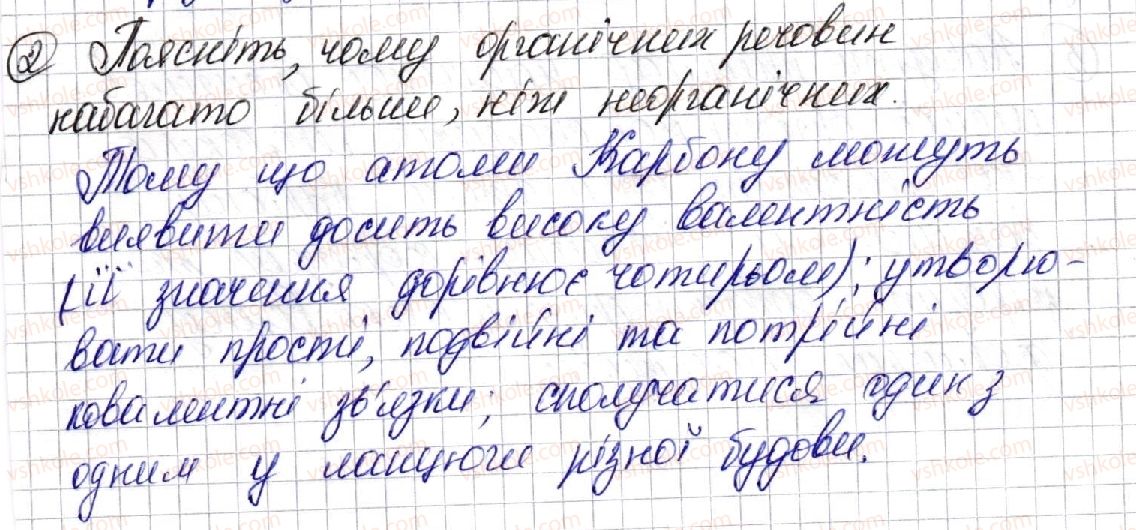 ② Поясніть, чому органічних речовин
набагато більше, ніж неорганічних.
Тому що атоми Карбону можуть
виявити досить високу валентність
(її значення дорівнює чотирьом); утворю-
вати прості, подвійні та потрійні
ковалентні зв'язки; сполучатися один з
одним у ланцюги різної будови.